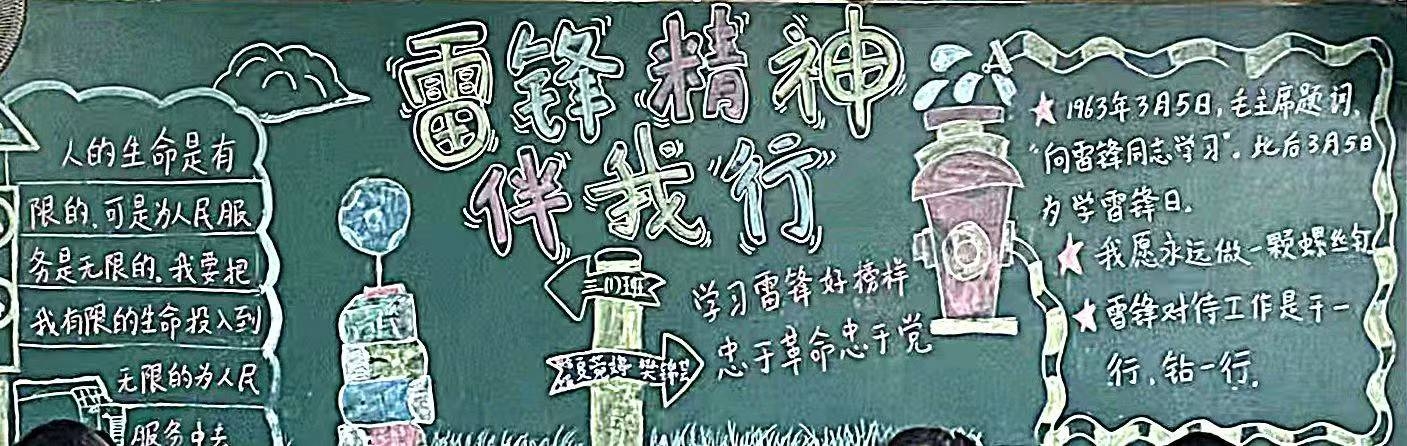 雷锋精神
伴我行
人的生命是有
限的,可是为人民服
务是无限的,我要把
我有限的生命投入到
无限的为人民
服务中去
三(1)班
学习雷锋好榜样
忠于革命忠于党
★1963年3月5日,毛主席题词,
"向雷锋同志学习"。此后3月5日
为学雷锋日。
★我愿永远做一颗螺丝钉
★雷锋对待工作是干一
行,钻一行。